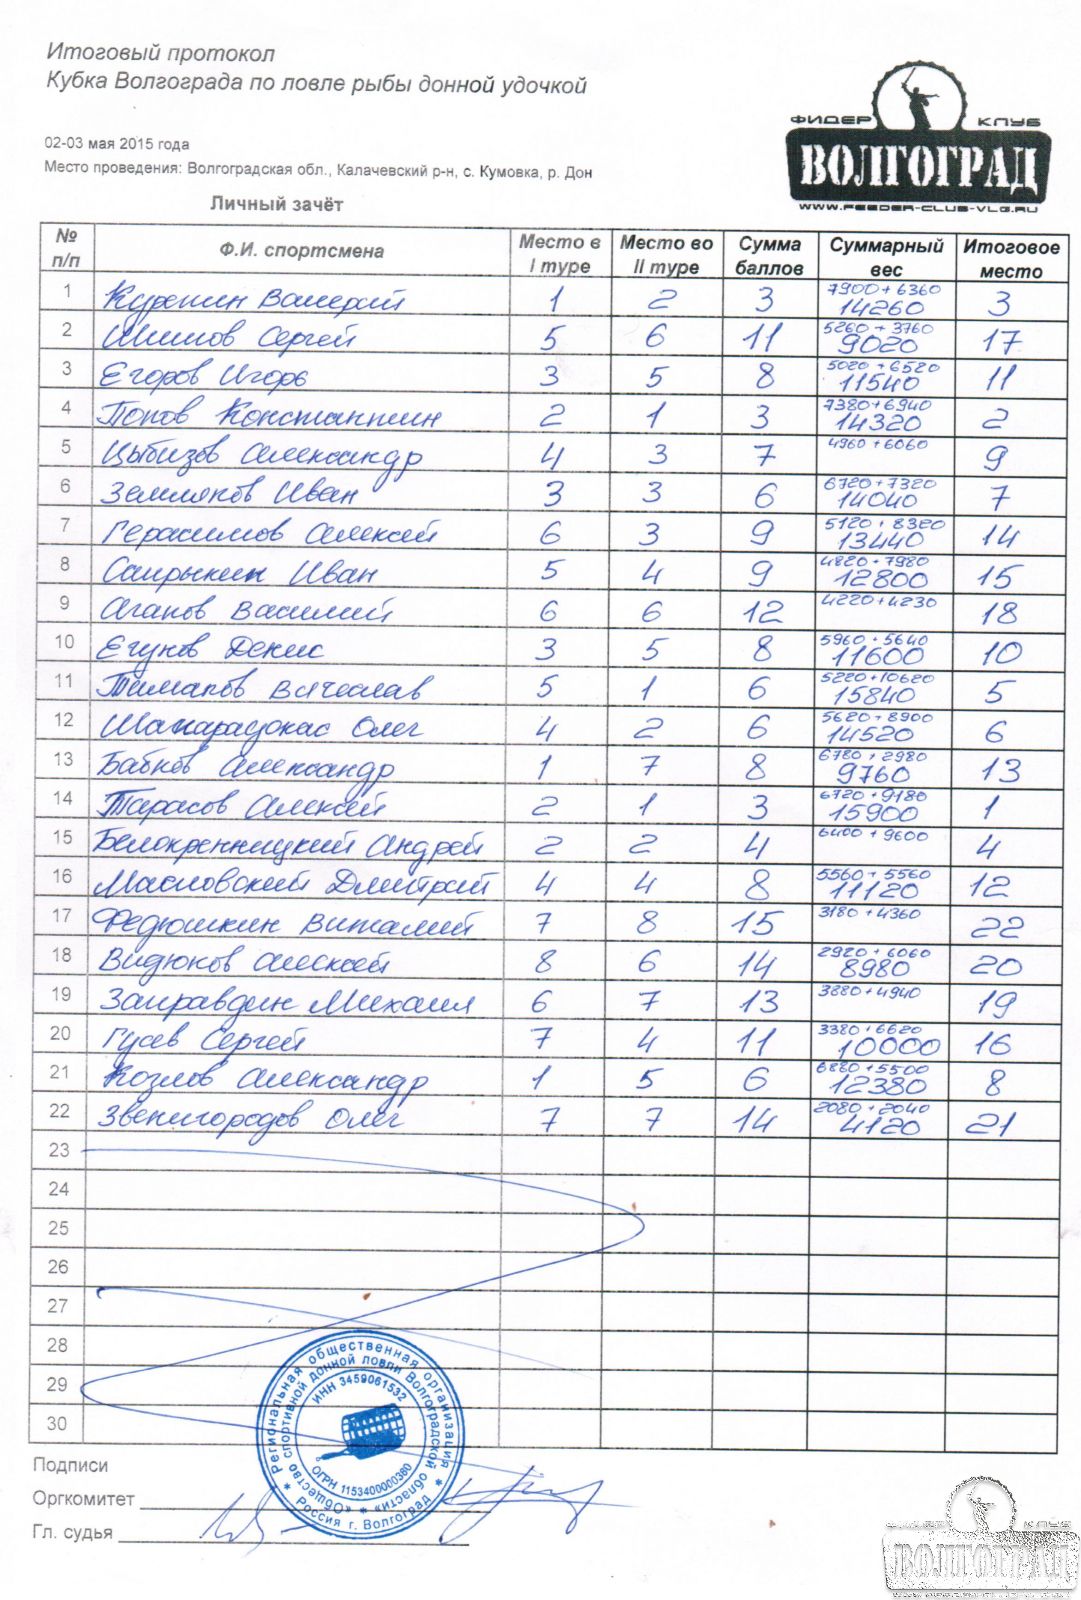 Итоговый протокол
Кубка Волгограда по ловле рыбы донной удочкой
ФИДЕР КЛУБ
ВОЛГОГРАД
WWW.FEEDER-CLUB-VLG.RU
02-03 мая 2015 года
Место проведения: Волгоградская обл., Калачевский р-н, с. Кумовка, р. Дон
Личный зачёт
№ п/п Ф.И. спортсмена Место в I туре Место во II туре Сумма баллов Суммарный вес Итоговое место
1 Курякин Валерий 1 2 3 7900+6360 14260 3
2 Шишов Сергей 5 6 11 5260+3760 9020 17
3 Егоров Игорь 3 5 8 5020+6520 11540 11
4 Попов Константин 2 1 3 7380+6940 14320 2
5 Цыбизов Александр 4 3 7 4960+6060 9
6 Земляков Иван 3 3 6 6720+7320 14040 7
7 Герасимов Алексей 6 3 9 5120+8320 13440 14
8 Сапрыкин Иван 5 4 9 4820+7980 12800 15
9 Агапов Василий 6 6 12 4220+4230 18
10 Егунов Денис 3 5 8 5960+5640 11600 10
11 Тимапов Вячеслав 5 1 6 5220+10620 15840 5
12 Шапарадокас Олег 4 2 6 5620+8900 14520 6
13 Бабков Александр 1 7 8 6780+2980 9760 13
14 Тарасов Алексей 2 1 3 6720+9180 15900 1
15 Белокренницкий Андрей 2 2 4 6400+9600 4
16 Масловский Дмитрий 4 4 8 5560+5560 11120 12
17 Федюшкин Виталий 7 8 15 3180+4360 22
18 Видюков Алексей 8 6 14 2920+6060 8980 20
19 Заправдин Михаил 6 7 13 3880+4940 19
20 Гусев Сергей 7 4 11 3380+6620 10000 16
21 Козлов Александр 1 5 6 6880+5500 12380 8
22 Звенигородов Олег 7 7 14 2080+2040 4120 21
23
24
25
26
27
28
29
30
Региональная общественная организация
«Общество спортивной донной ловли Волгоградской области»
ИНН 3459061532
ОГРН 1153400000380
Россия г. Волгоград
Подписи
Оргкомитет
Гл. судья
ФИДЕР КЛУБ
ВОЛГОГРАД